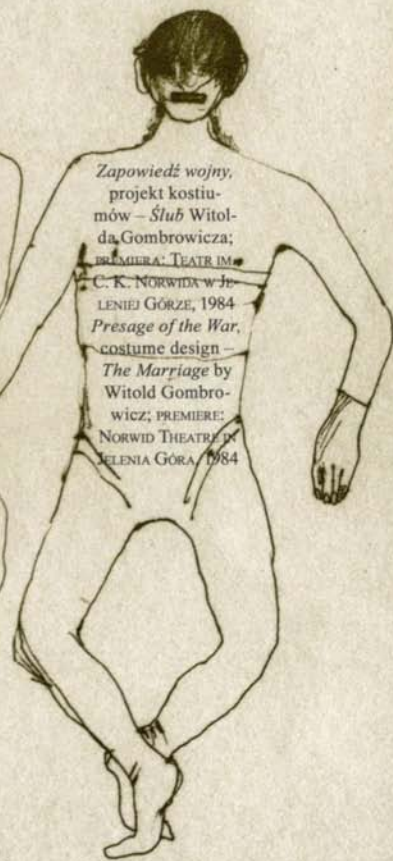 Zapowiedź wojny,
projekt kostiu-
mów – Ślub Witol-
da Gombrowicza;
PREMIERA: TEATR IM.
C. K. NORWIDA W JE-
LENIEJ GÓRZE, 1984
Presage of the War,
costume design –
The Marriage by
Witold Gombro-
wicz; PREMIERE:
NORWID THEATRE IN
JELENIA GÓRA, 1984